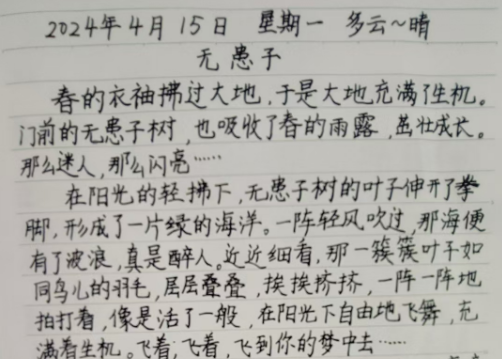 2024年4月15日 星期一 多云~晴
无患子
春的衣袖拂过大地,于是大地充满了生机。
门前的无患子树,也吸收了春的雨露,茁壮成长。
那么迷人,那么闪亮……
在阳光的轻拂下,无患子树的叶子伸开了拳
脚,形成了一片绿的海洋。一阵轻风吹过,那海便
有了波浪,真是醉人。近近细看,那一簇簇叶子如
同鸟儿的羽毛,层层叠叠,挨挨挤挤,一阵一阵地
拍打着,像是活了一般,在阳光下自由地飞舞,充
满着生机。飞着,飞着,飞到你的梦中去……